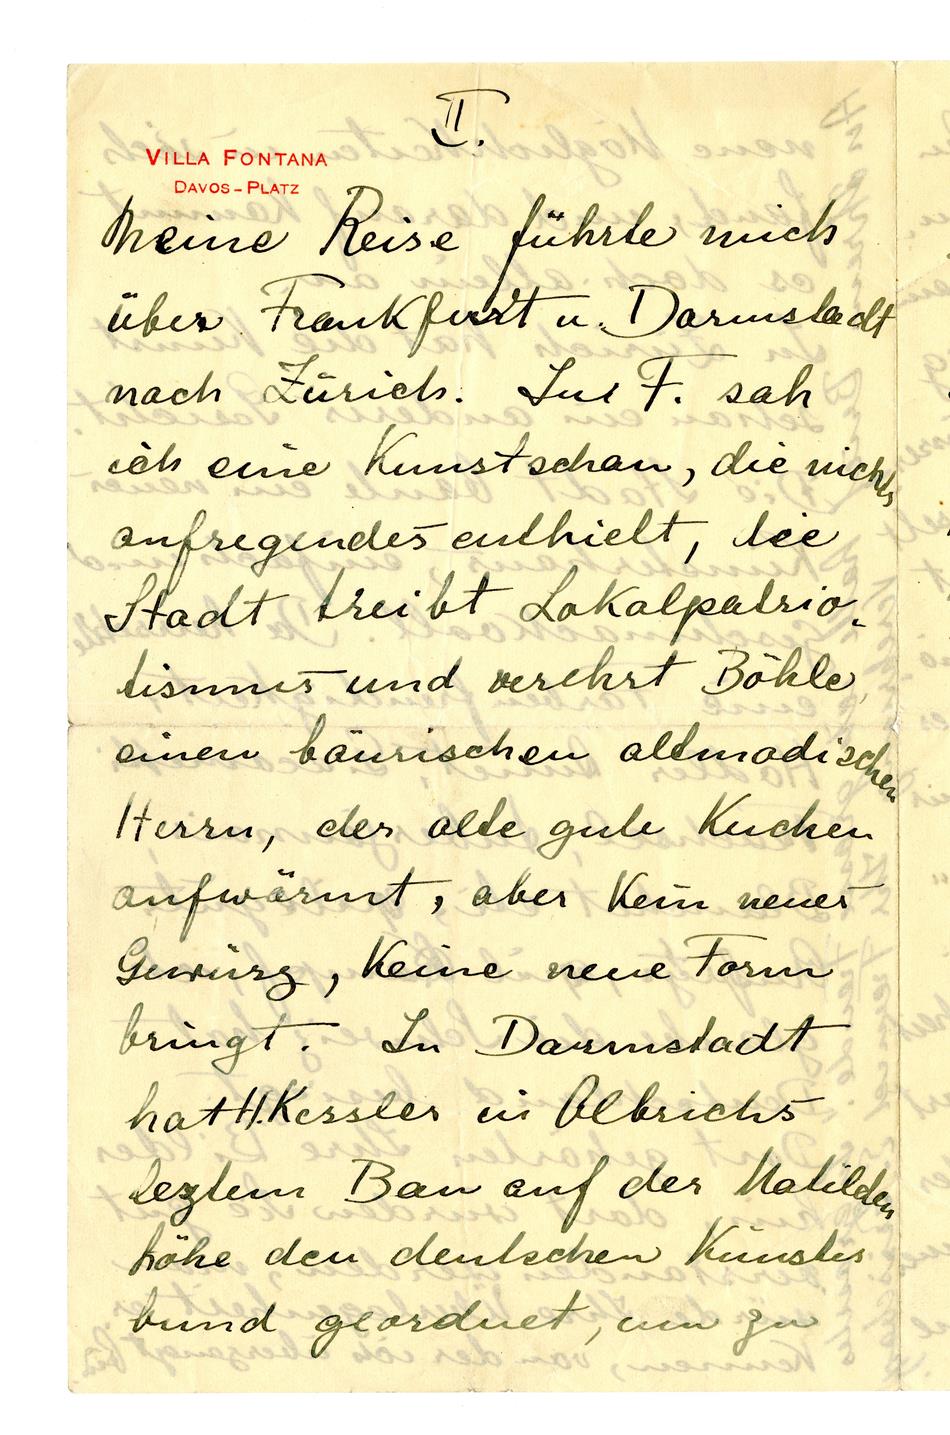 II.
VILLA FONTANA
DAVOS-PLATZ
Meine Reise führte mich
über Frankfurt u. Darmstadt
nach Zürich. In F. sah
ich eine Kunstschau, die nichts
aufregendes enthielt, die
Stadt treibt Lokalpatrio-
tismus und verehrt Böhle,
einen bäurischen altmodischen
Herrn, der alte gute Kuchen
aufwärmt, aber kein neues
Gewürz, keine neue Form
bringt. In Darmstadt
hat H. Kessler in Olbrichs
leztem Bau auf der Matilden
höhe den deutschen Künstler
bund geordnet, um zu